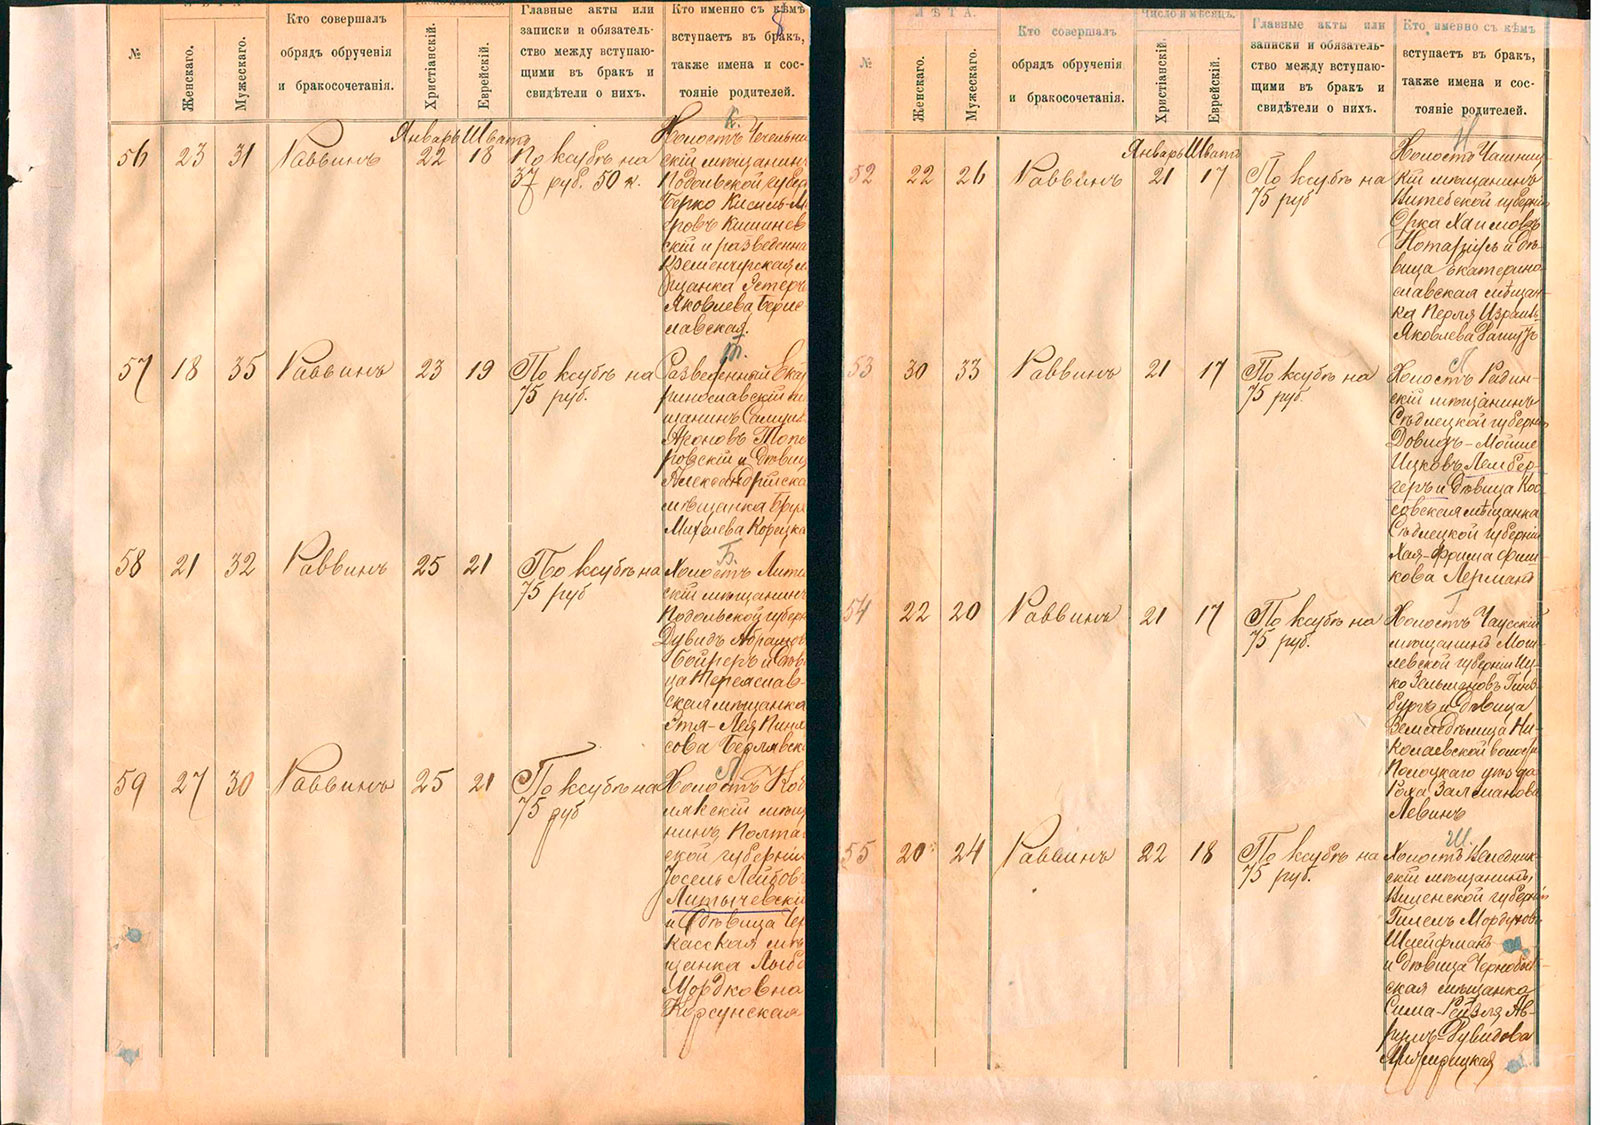 ЛѢТА.
Число и мѣсяцъ.
№
Женскаго.
Мужескаго.
Кто совершалъ
обрядъ обрученія
и бракосочетанія.
Христіанскій.
Еврейскій.
Главные акты или
записки и обязатель-
ство между вступаю-
щими въ бракъ и
свидѣтели о нихъ.
Кто именно съ кѣмъ
вступаетъ въ бракъ,
также имена и сос-
тояніе родителей.
Январь Шватъ
56 23 31 Раввинъ 22 18 По ксубѣ на
37 руб. 50 к.
Холостъ Чечельни
скій мѣщанинъ
Подольской губер
Берко Кисиль-М
еровъ Кишинев
скій и разведенна
Кременчугская м
щанка Эстеръ
Яковлева Берис
лавская.
57 18 35 Раввинъ 23 19 По ксубѣ на
75 руб.
Разведенный Ека
ринославскій
щанинъ
Ароновъ Топо
ровскій и дѣвиц
Александрійска
мѣщанка
Михелева Корецка
Б.
58 21 32 Раввинъ 25 21 По ксубѣ на
75 руб
Холостъ Лити
скій мѣщанинъ
Подольской губерн
Дувидъ Абрамов
Бойнеръ и дѣв
ца Переяслав-
ская мѣщанка
Этя-Лея
сова Берлявск
Л
59 27 30 Раввинъ 25 21 По ксубѣ на
75 руб
Холостъ Коб
лякскій мѣщ
нинъ Полта
ской губерніи
Іосель Лейбовъ
Литичевскі
и дѣвица Чер
касская мѣ
щанка Лыба
Мордковна
Корсунская
ЛѢТА.
Число и мѣсяцъ.
№
Женскаго.
Мужескаго.
Кто совершалъ
обрядъ обрученія
и бракосочетанія.
Христіанскій.
Еврейскій.
Главные акты или
записки и обязатель-
ство между вступаю-
щими въ бракъ и
свидѣтели о нихъ.
Кто именно съ кѣмъ
вступаетъ въ бракъ,
также имена и сос-
тояніе родителей.
Январь Шватъ
52 22 26 Раввинъ 21 17 По ксубѣ на
75 руб
Холостъ Чашниц-
кій мѣщанинъ
Витебской губерніи
Орка Хаимовъ
Нотариусъ и дѣ-
вица Екатерино
славская мѣщан-
ка Перля Израиль-
Яковлева
53 30 33 Раввинъ 21 17 По ксубѣ на
75 руб.
Холостъ Радин-
скій мѣщанинъ
Сѣдлецкой губерніи
Довидъ-Мойше
Ицковъ Лембер-
геръ и дѣвица Кос-
совская мѣщанка
Сѣдлецкой губерніи
Хая-Фрима
кова Лерманъ
54 22 20 Раввинъ 21 17 По ксубѣ на
75 руб.
Холостъ Чаусскій
мѣщанинъ Моги
левской губерніи Иц-
ко Зельмановъ Гинз-
бургъ и дѣвица
Земледѣлица Ни-
колаевской волости
Полоцкаго уѣзда
Роха Залманова
Левинъ
Ш.
55 20 24 Раввинъ 22 18 По ксубѣ на
75 руб.
Холостъ
скій мѣщанинъ
Виленской губерніи
Гилелъ Мордухов
Шлейфманъ
и дѣвица Чернобыль-
ская мѣщанка
Сима-Рейзля Ав-
румъ-Дувидова